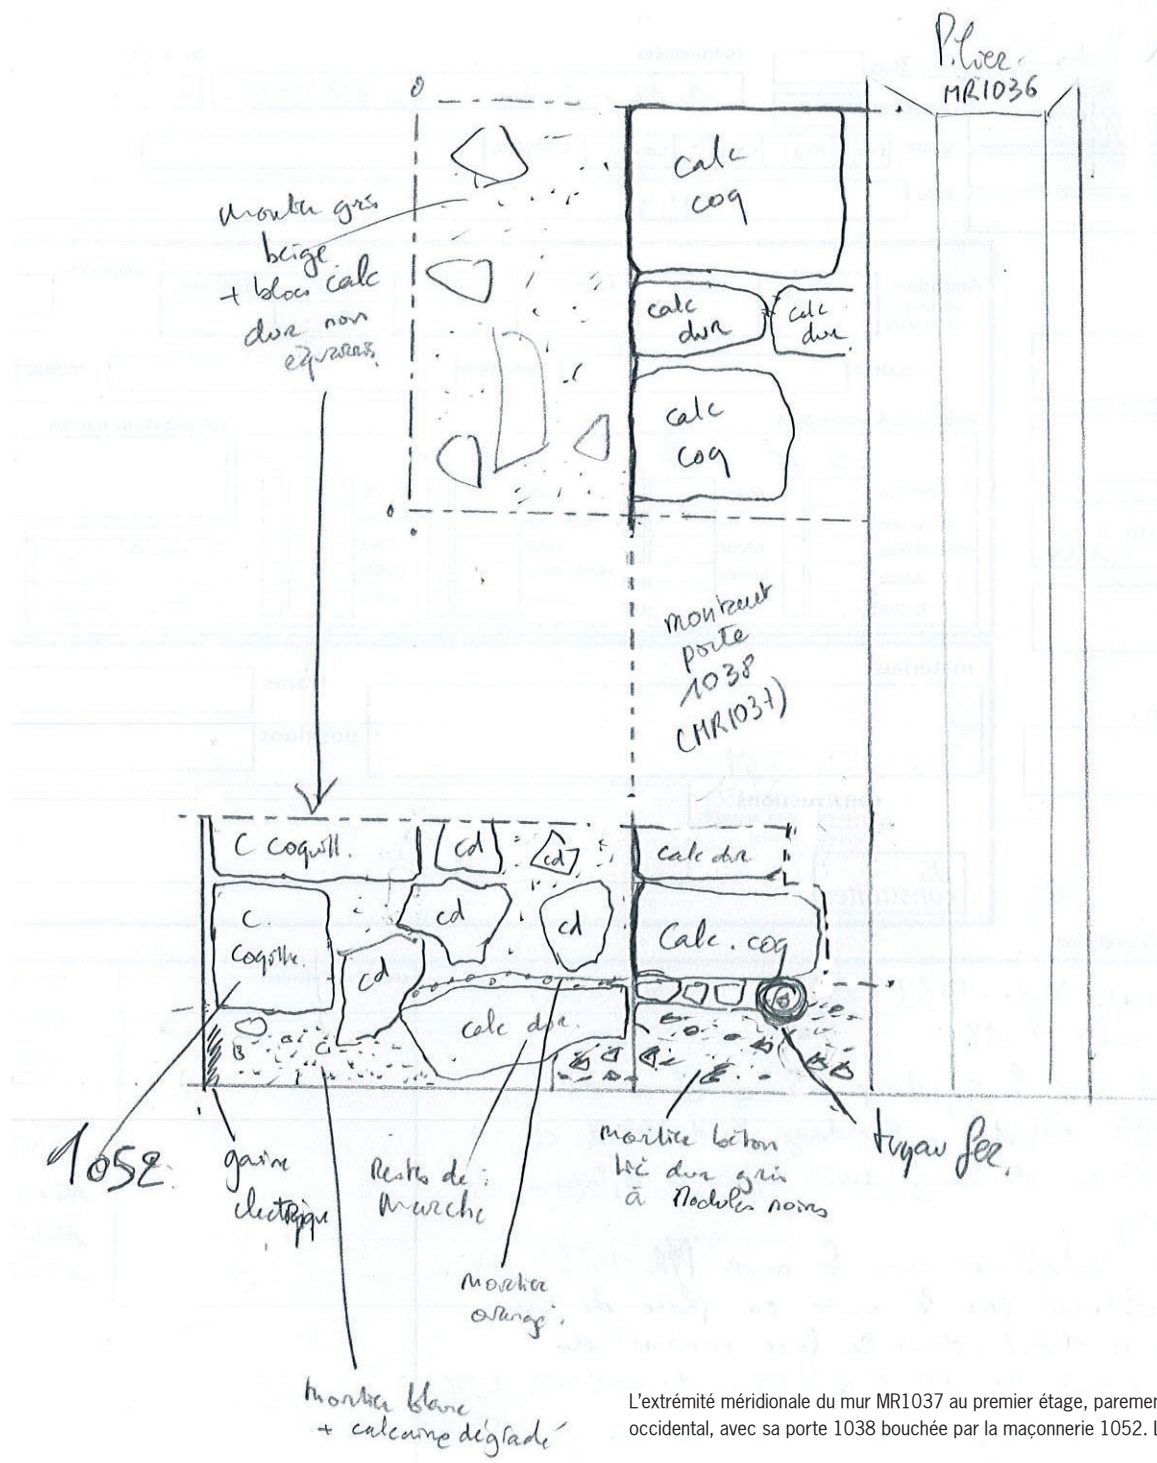 Pilier
MR1036
calc
coq
Mortier gris
beige
+ blocs calc
dur non
équarris
calc
dur
calc
dur
calc
coq
montant
porte
1038
(MR1037)
C coquill.
cd
cd
calc dur
C
Coquill.
cd
cd
Calc. coq
cd
calc dur.
B
1052.
gaine
electrique
Restes de
marche
mortier béton
très dur gris
à Nodules noirs
tuyau fer.
mortier
orangé.
mortier blanc
+ calcaire dégradé
L'extrémité méridionale du mur MR1037 au premier étage, paremen
occidental, avec sa porte 1038 bouchée par la maçonnerie 1052. L